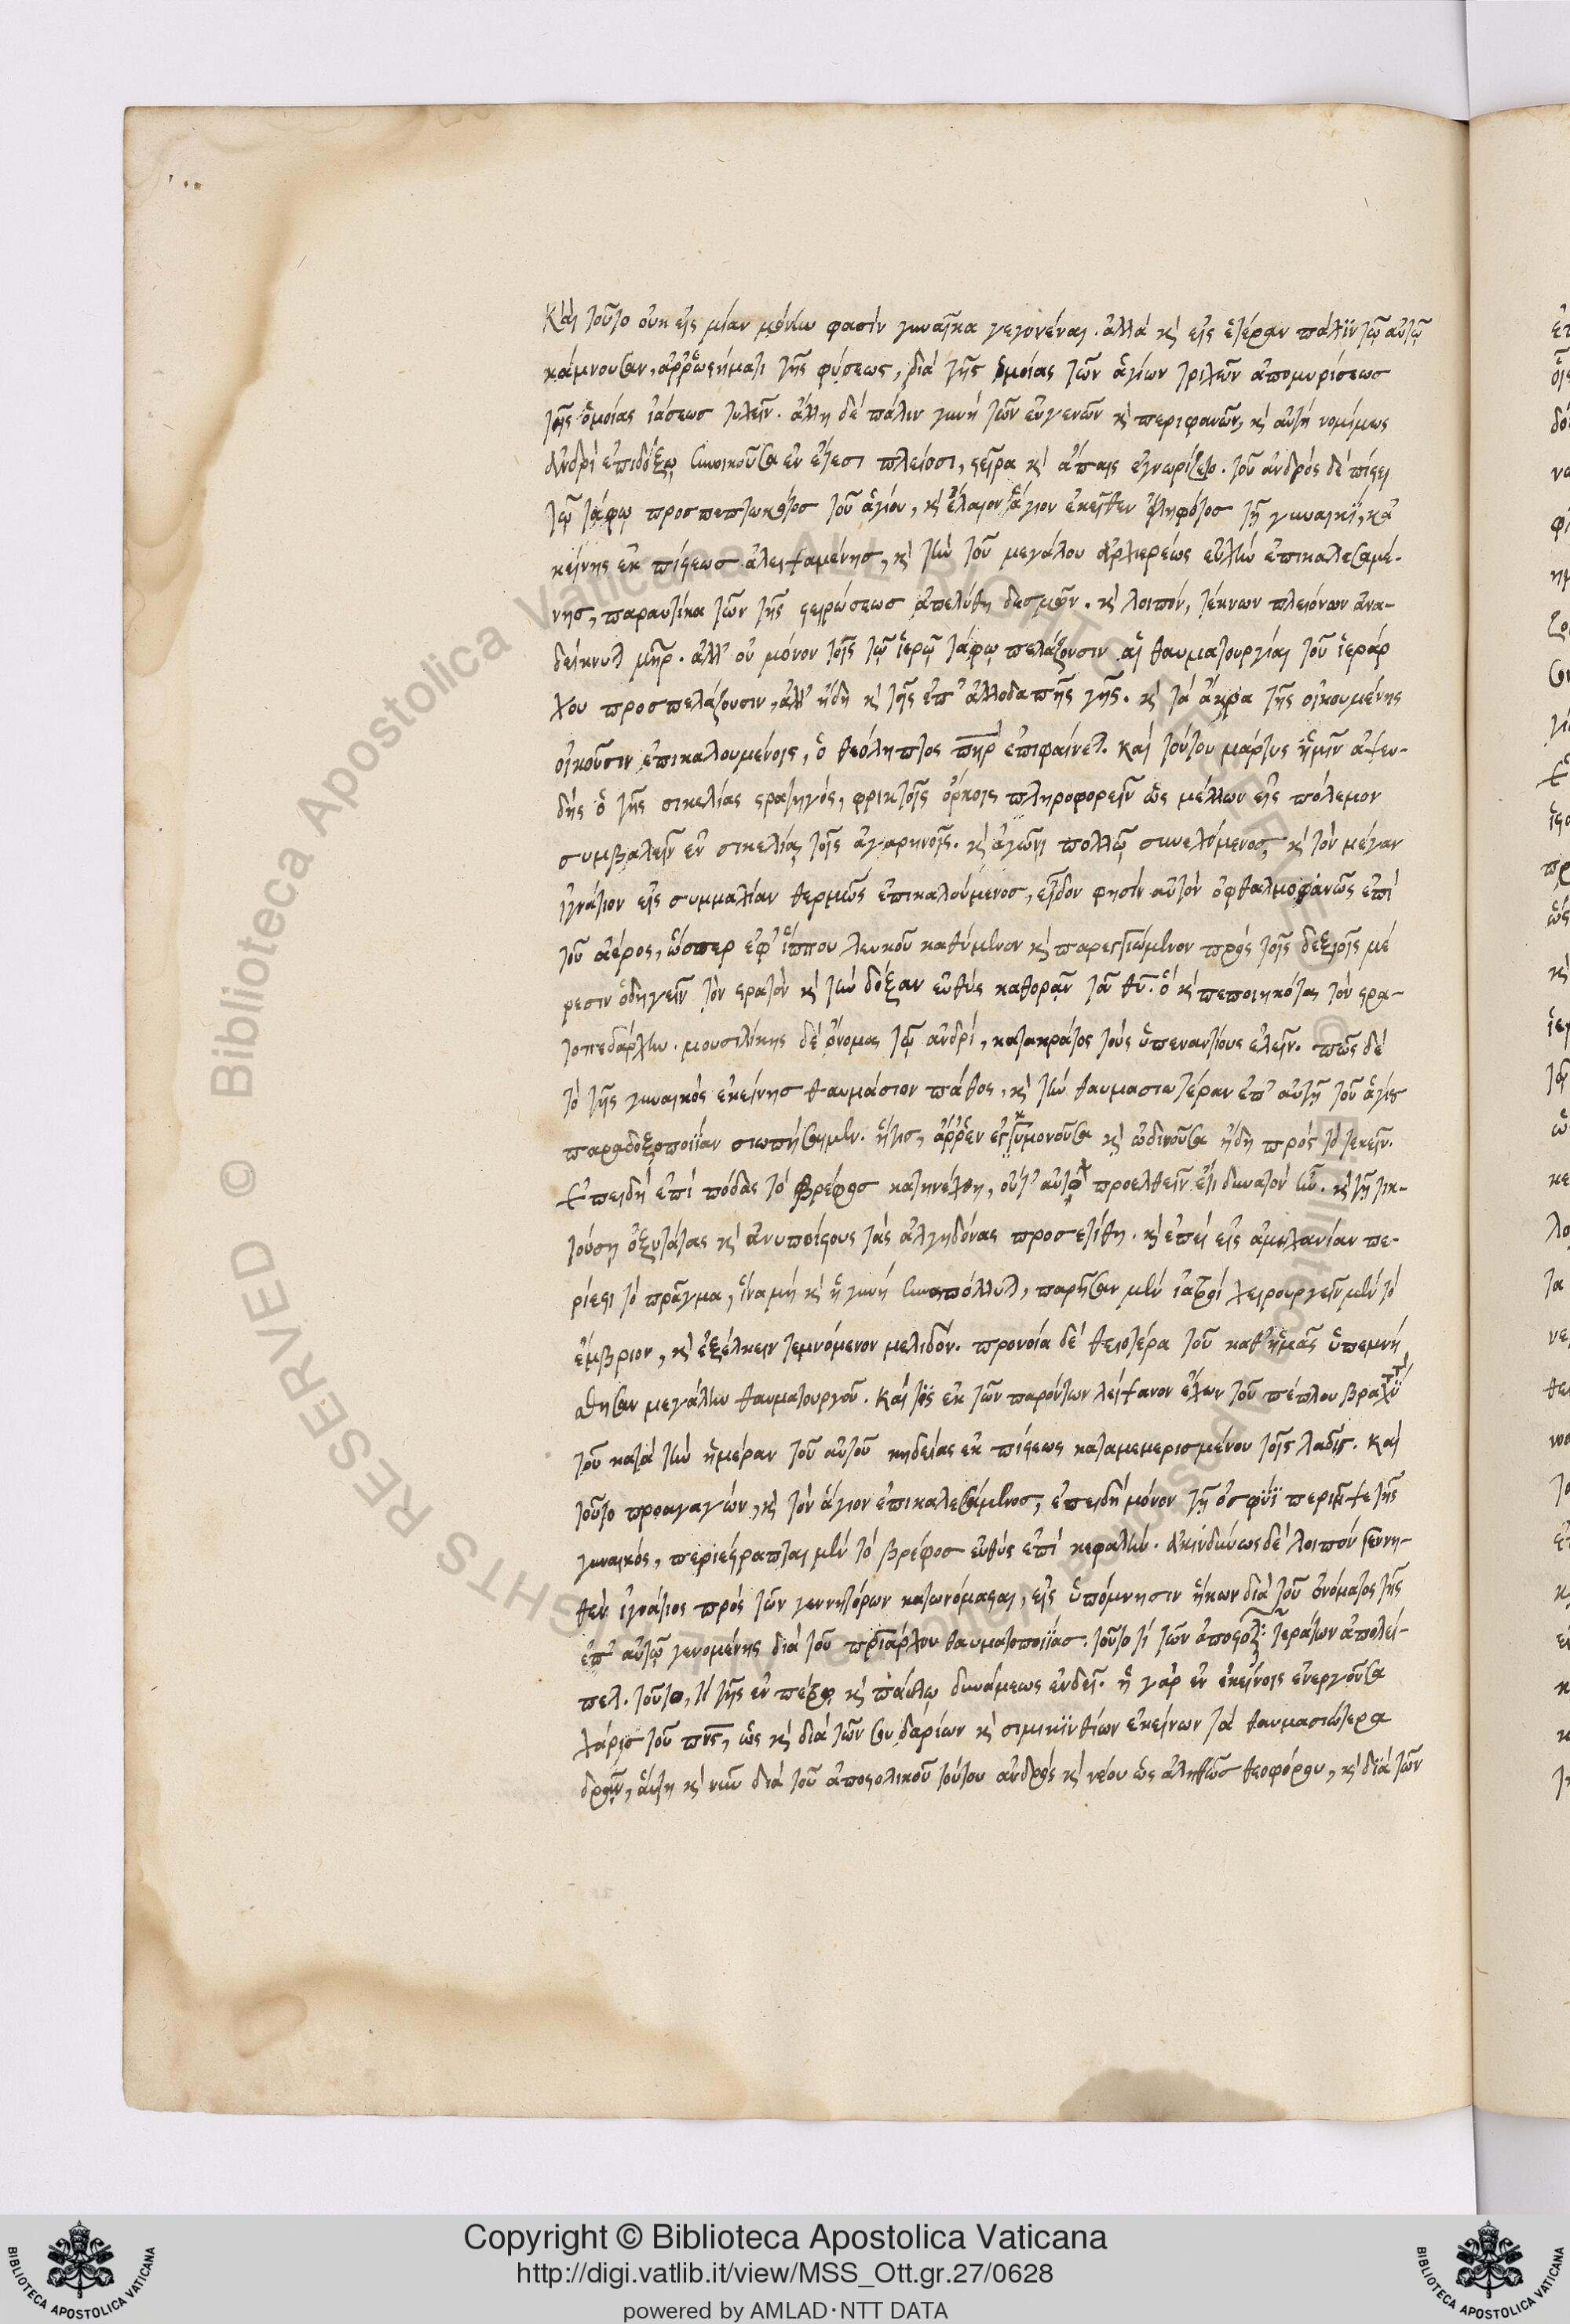 Καὶ τοῦτο οὐκ εἰς μίαν μόνην φασὶν γυναῖκα γεγονέναι. ἀλλὰ κỳ εἰς ἑτέραν πάλιν τῷ αὐτῷ
κάμνουσαν ἀῤῥωστήματι τῆς φύσεως, διὰ τῆς ὁμοίας τῶν ἁγίων τριχῶν ἀπομυρίσεως
τῆς ὁμοίας ἰάσεως τυχεῖν. ἄλλη δὲ πάλιν γυνὴ τῶν εὐγενῶν κỳ περιφανῶν, κỳ αὐτὴ νομίμως
ἀνδρὶ ἐπιδόξῳ συνοικοῦσα ἐν ἔτεσι πλείοσι, στεῖρα κỳ ἄπαις ἐγνωρίζετο. τοῦ ἀνδρὸς δὲ πίστει
τῷ τάφῳ προσπεπτωκότος τοῦ ἁγίου, κỳ ἔλαιον ἅγιον ἐκεῖθεν εἰληφότος τῇ γυναικῒ, κἀ
κείνης ἐκ πίστεως ἀλειψαμένης, κỳ τὴν τοῦ μεγάλου ἀρχιερέως εὐχὴν ἐπικαλεσαμέ-
νης, παραυτίκα τῶν τῆς στειρώσεως ἀπελύθη δεσμῶν. κỳ λοιπόν, τέκνων πλειόνων ἀνα-
δείκνυται μῆρ. ἀλλ' οὐ μόνον τοῖς τῷ ἱερῷ τάφῳ πελάζουσιν αἱ θαυματουργίαι τοῦ ἱεράρ
χου προσπελάζουσιν, ἀλλ' ἤδη κỳ τοῖς ἐπ' ἀλλοδαπῆς γῆς. κỳ τὰ ἄκρα τῆς οἰκουμένης
οἰκοῦσιν ἐπικαλουμένοις, ὁ θεόληπτος πηρ ἐπιφαίνεται. καὶ τούτου μάρτυς ἡμῖν ἀψευ-
δὴς ὁ τῆς σικελίας στρατηγός, φρικτοῖς ὅρκοις πληροφορεῖν ὡς μέλλων εἰς πόλεμον
συμβαλεῖν ἐν σικελίᾳ τοῖς ἀγαρηνοῖς. κỳ ἀγῶνι πολλῷ συνεχόμενος κỳ τὸν μέγαν
ἰγνάτιον εἰς συμμαχίαν θερμῶς ἐπικαλούμενος, εἶδον φησὶν αὐτὸν ὀφθαλμοφανῶς ἐπὶ
τοῦ ἀέρος, ὥσπερ ἐφ' ἵππου λευκοῦ καθήμενον κỳ παρεγγυώμενον πρὸς τοῖς δεξιοῖς μέ
ρεσιν ὁδηγεῖν τὸν στρατὸν κỳ τὴν δόξαν εὐθὺς καθορᾶν τοῦ θυ. ὃ κỳ πεποιηκότα τὸν στρα-
τοπεδάρχην. μουσιλίκης δὲ ὄνομα τῷ ἀνδρί, κατακράτος τοὺς ὑπεναντίους ἑλεῖν. πῶς δὲ
τὸ τῆς γυναικὸς ἐκείνης θαυμάσιον πάθος, κỳ τὴν θαυμασιωτέραν ἐπ' αὐτῇ τοῦ ἁγίου
παραδοξοποιΐαν σιωπήσομεν. ἥτις, ἄῤῥεν ἐγκυμονοῦσα κỳ ὠδινοῦσα ἤδη πρὸς τὸ τεκεῖν.
ἐπειδὴ ἐπὶ πόδας τὸ βρέφος κατηνέχθη, οὔτ' αὐτῷ προελθεῖν ἔτι δυνατὸν ἦν. κỳ τῇ τικ-
τούσῃ ὀξυτάτας κỳ ἀνυποίστους τὰς ἀλγηδόνας προσετίθη. κỳ ἐπεὶ εἰς ἀμηχανίαν πε-
ρίεστι τὸ πρᾶγμα, ἵνα μὴ κỳ ἡ γυνὴ συναπόλλυται, παρῆσαν μὲν ἰατροὶ χειρουργεῖν μὲν τὸ
ἔμβριον, κỳ ἐξέλκειν τεμνόμενον μελιδόν. προνοία δὲ θειοτέρα τοῦ καθ' ἡμᾶς ὑπεμνή
σθησαν μεγάλου θαυματουργοῦ. καί τις ἐκ τῶν παρόντων λείψανον ἔχων τοῦ πέπλου βραχύ τι
τοῦ κατὰ τὴν ἡμέραν τοῦ αὐτοῦ κηδείας ἐκ πίστεως καταμεμερισμένου τοῖς λαοῖς. καὶ
τοῦτο προαγαγών, κỳ τὸν ἅγιον ἐπικαλεσάμενος, ἐπειδὴ μόνον τῇ ὀσφύϊ περιῆψε τῆς
γυναικός, περιέστραπται μὲν τὸ βρέφος εὐθὺς ἐπὶ κεφαλήν. ἀκινδύνως δὲ λοιπὸν γεννη-
θὲν ἰγνάτιος πρὸς τῶν γεννητόρων κατωνόμασται, εἰς ὑπόμνησιν ἥκων διὰ τοῦ ὀνόματος τῆς
ἐπ' αὐτῷ γενομένης διὰ τοῦ πριάρχου θαυματοποιΐας. τοῦτο τί τῶν ἀποστολικῶν τεράτων ἀπολεί-
πεται. τοῦτο, τί τῆς ἐν πέτρῳ κỳ παύλῳ δυνάμεως ἐνδεῖ. ἡ γὰρ ἐν ἐκείνοις ἐνεργοῦσα
χάρις τοῦ πνς, ὡς κỳ διὰ τῶν σουδαρίων κỳ σιμικϊνθίων ἐκείνων τὰ θαυμασιώτερα
δρῶν, αὕτη κỳ νῦν διὰ τοῦ ἀποστολικοῦ τούτου ἀνδρὸς κỳ νέου ὡς ἀληθῶς θεοφόρου, κỳ διὰ τῶν
Copyright © Biblioteca Apostolica Vaticana
http://digi.vatlib.it/view/MSS_Ott.gr.27/0628
powered by AMLAD·NTT DATA